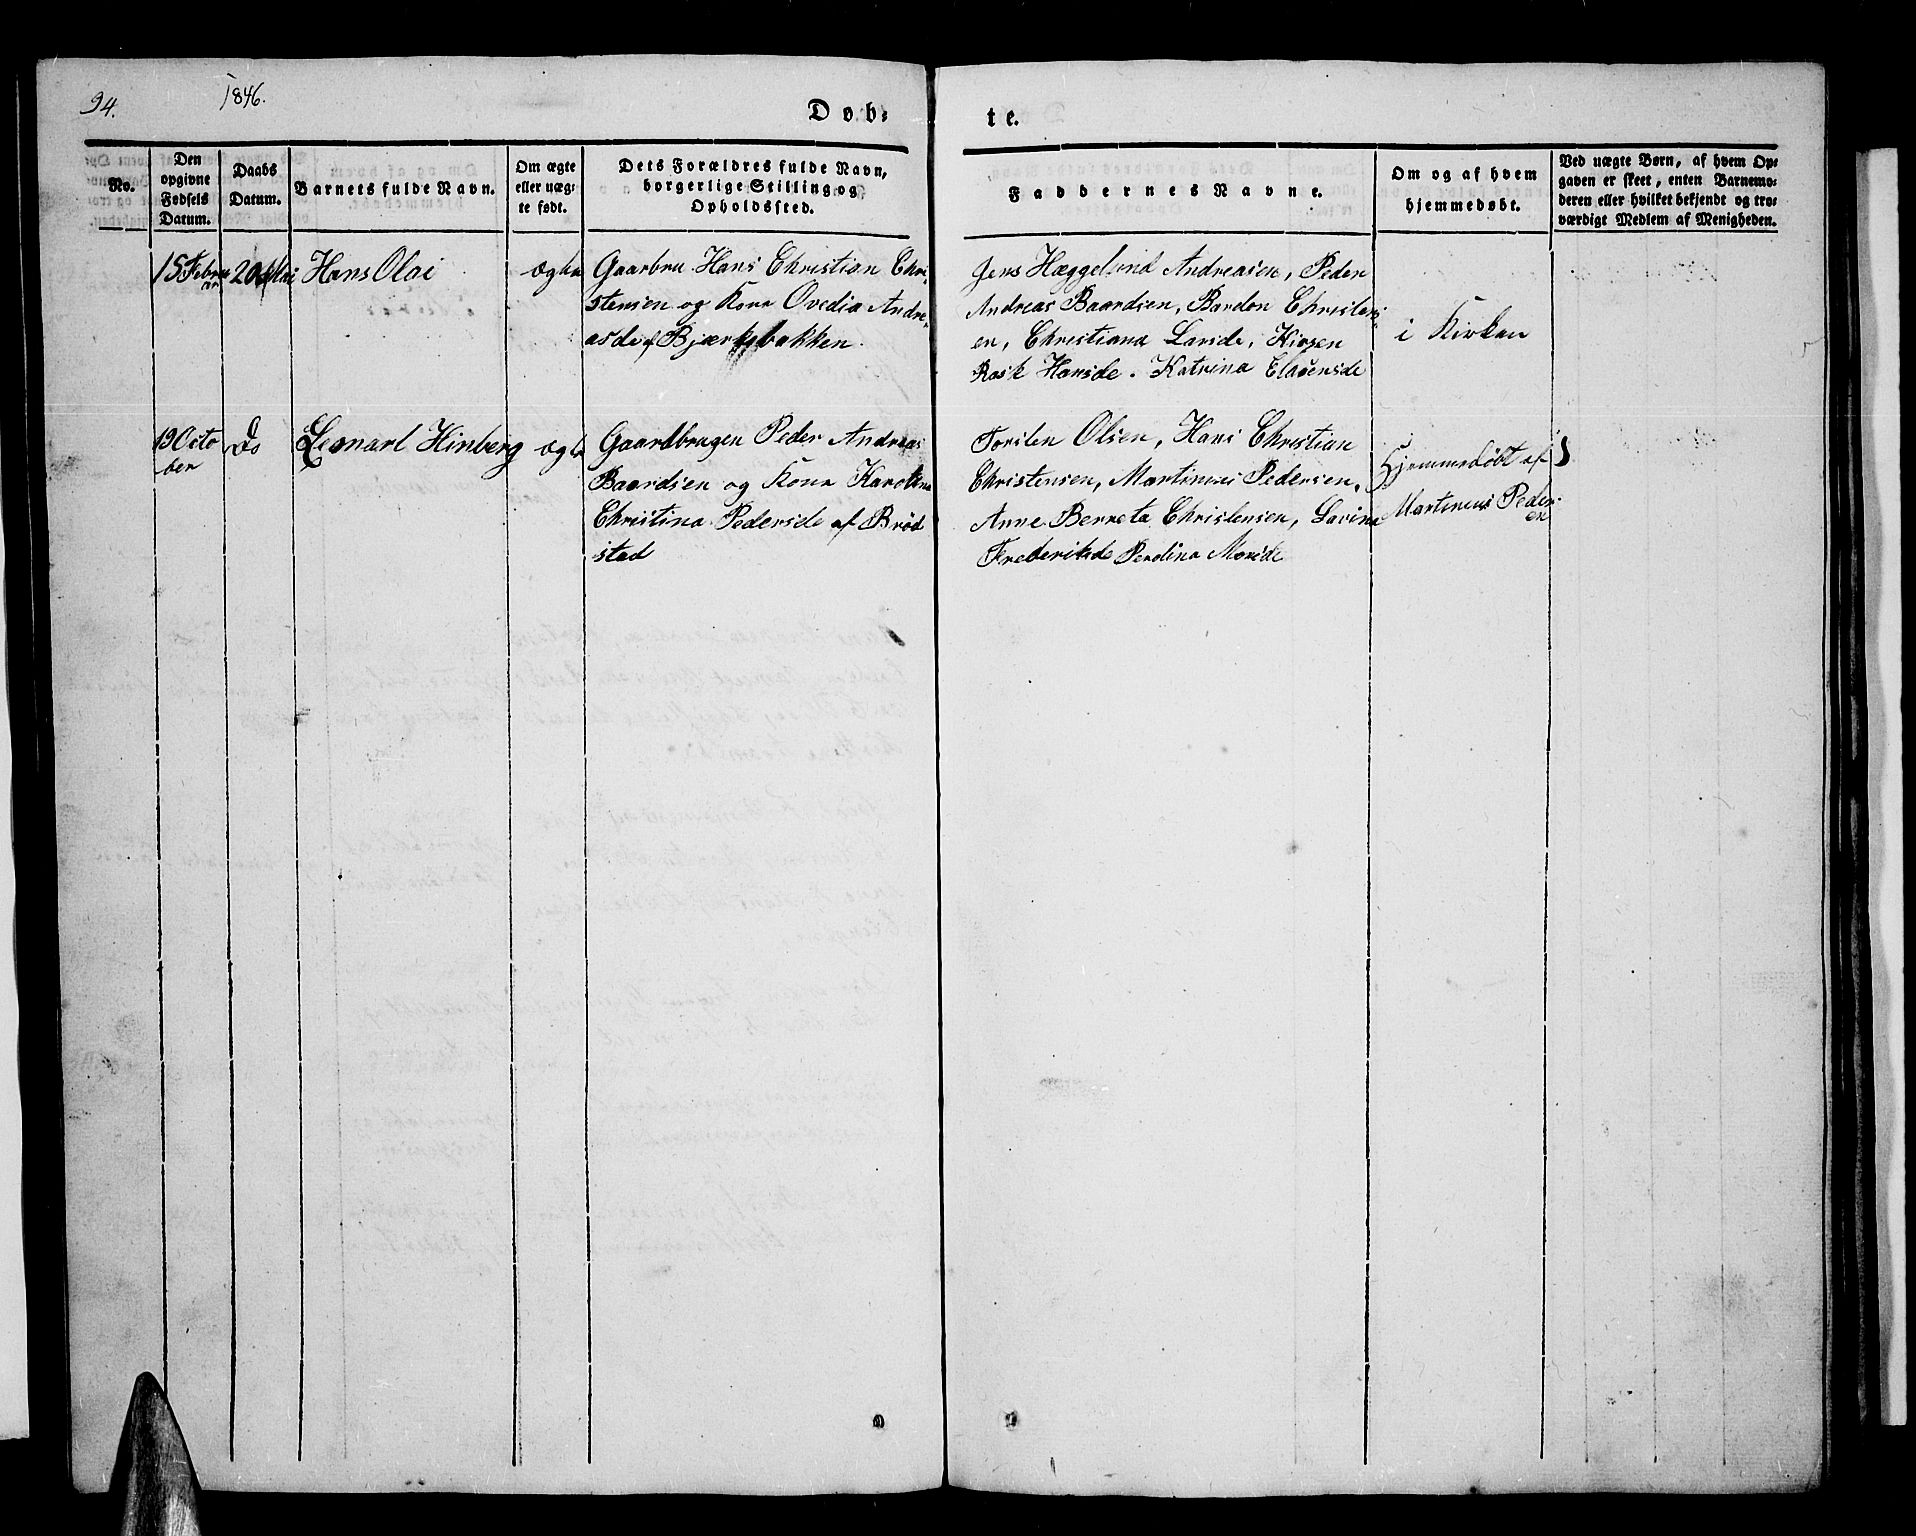 94.
1846.
Døb-
te.
No.
Den
opgivne
Fødsels
Datum.
Daabs
Datum.
Barnets fulde Navn.
Om ægte
eller uæg-
te født.
Dets Forældres fulde Navn,
borgerlige Stilling og
Opholdssted.
Faddernes Navne.
Om og af hvem
hjemmedøbt.
Ved uægte Børn, af hvem Op-
gaven er skeet, enten Barnemo-
deren eller hvilket bekjendt og tro-
værdigt Medlem af Menigheden.
15 Febru
ar
20 Mai
Hans Olai
ægta
Gaarbru Hans Christian Chri-
stensen og Kona Ovedia Andre-
asde af Bjærkebakken.
Jens Hæggelund Andreasen, Peder
Andreas Baardsen, Bardon Christens-
en, Christiana Larsde,
Hansde. Katrina
i Kirken
19 Octo
ber
Do
Leonart Hinberg
ægta
Gaardbrugen Peder Andreas
Baardsen og Kona Karolina
Christina Pedersde af Brød
stad
Torsten Olsen, Hans Christian
Christensen, Martinus Pedersen,
Anne Berreta Christensen, Lavina
Frederikde Perolina Monsde
Hjemmedøbt af
Martinus Peder
en